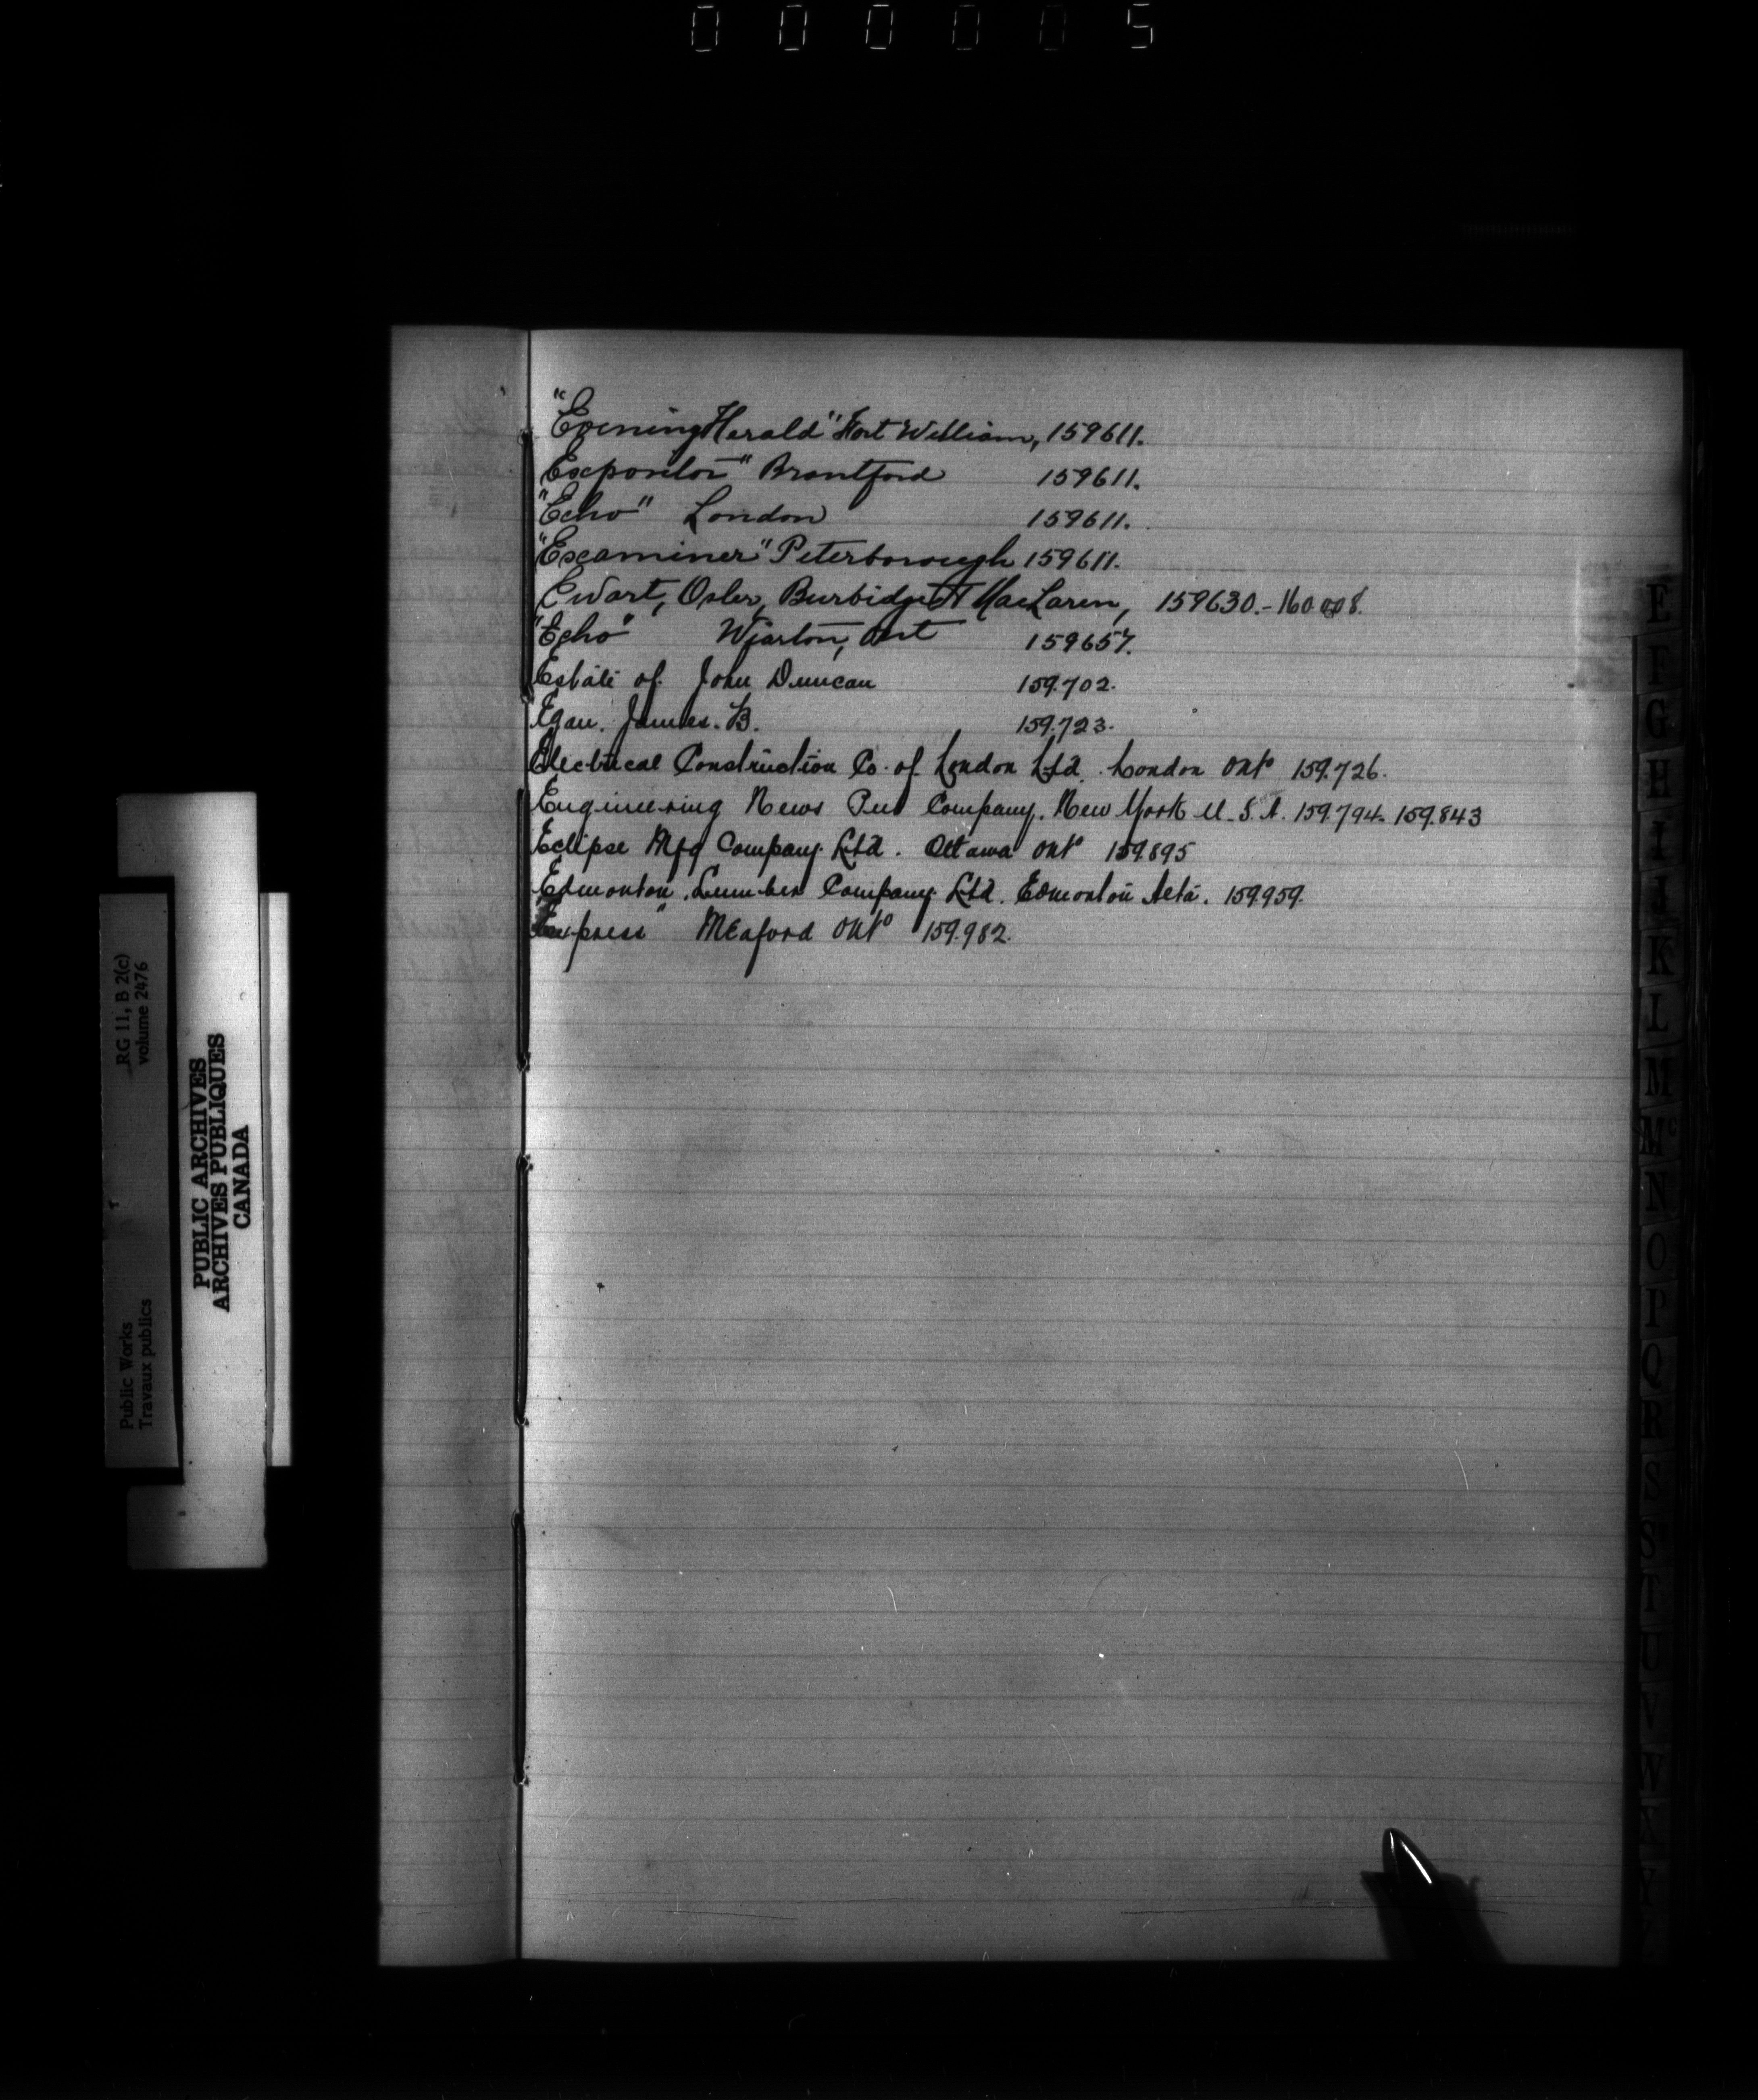 000005
"Evening Herald" Fort William, 159611.
Expositor" Brantford 159611.
"Echo" London 159611.
"Examiner" Peterborough 159611.
Ewart, Osler, Burbidge & MacLaren, 159630.-160.008.
"Echo" Wiarton, Ont 159657.
Estate of John Duncan 159.702.
Egan. James. B. 159.723.
Electrical Construction Co. of London Ltd. London Onto 159.726.
Engineering News Pub Company. New York U.S.A. 159.794. 159.843
Eclipse Mfg Company Ltd. Ottawa Onto 159.895
Edmonton Lumber Company Ltd. Edmonton Alta. 159.959.
Express" Meaford Onto 159.982.
RG 11, B 2(c)
volume 2476
Public Works
Travaux publics
PUBLIC ARCHIVES
ARCHIVES PUBLIQUES
CANADA
E
F
G
H
I
J
K
L
M
Mc
N
O
P
Q
R
S
S
T
U
V
W
Y